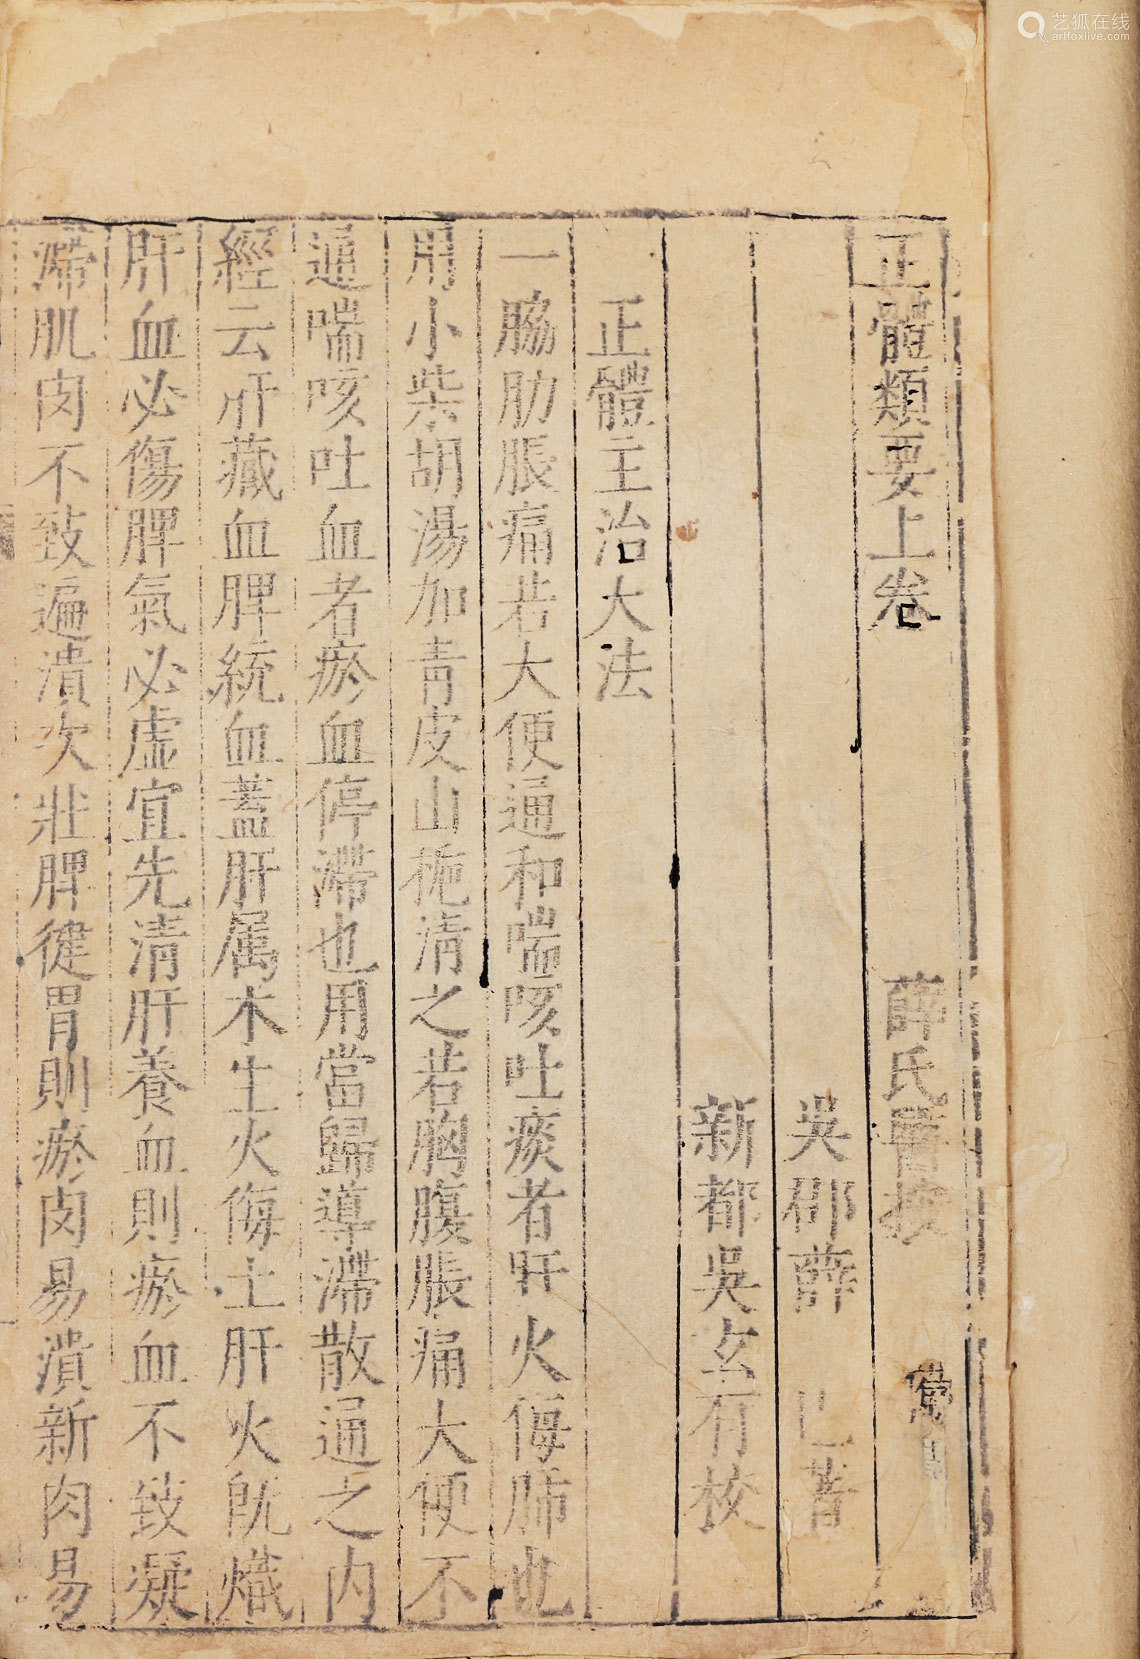 正體類要上卷　薛氏醫按
吳郡薛　己著
新都吳玄有校
正體主治大法
一脇肋脹痛若大便通和喘咳吐痰者肝火侮肺也
用小柴胡湯加青皮山梔清之若胸腹脹痛大便不
通喘咳吐血者瘀血停滯也用當歸導滯散通之內
經云肝藏血脾統血蓋肝属木生火侮土肝火旣熾
肝血必傷脾氣必虛宜先清肝養血則瘀血不致凝
滯肌肉不致遍潰次壯脾健胃則瘀肉易潰新肉易
艺狐在线
artfoxlive.com